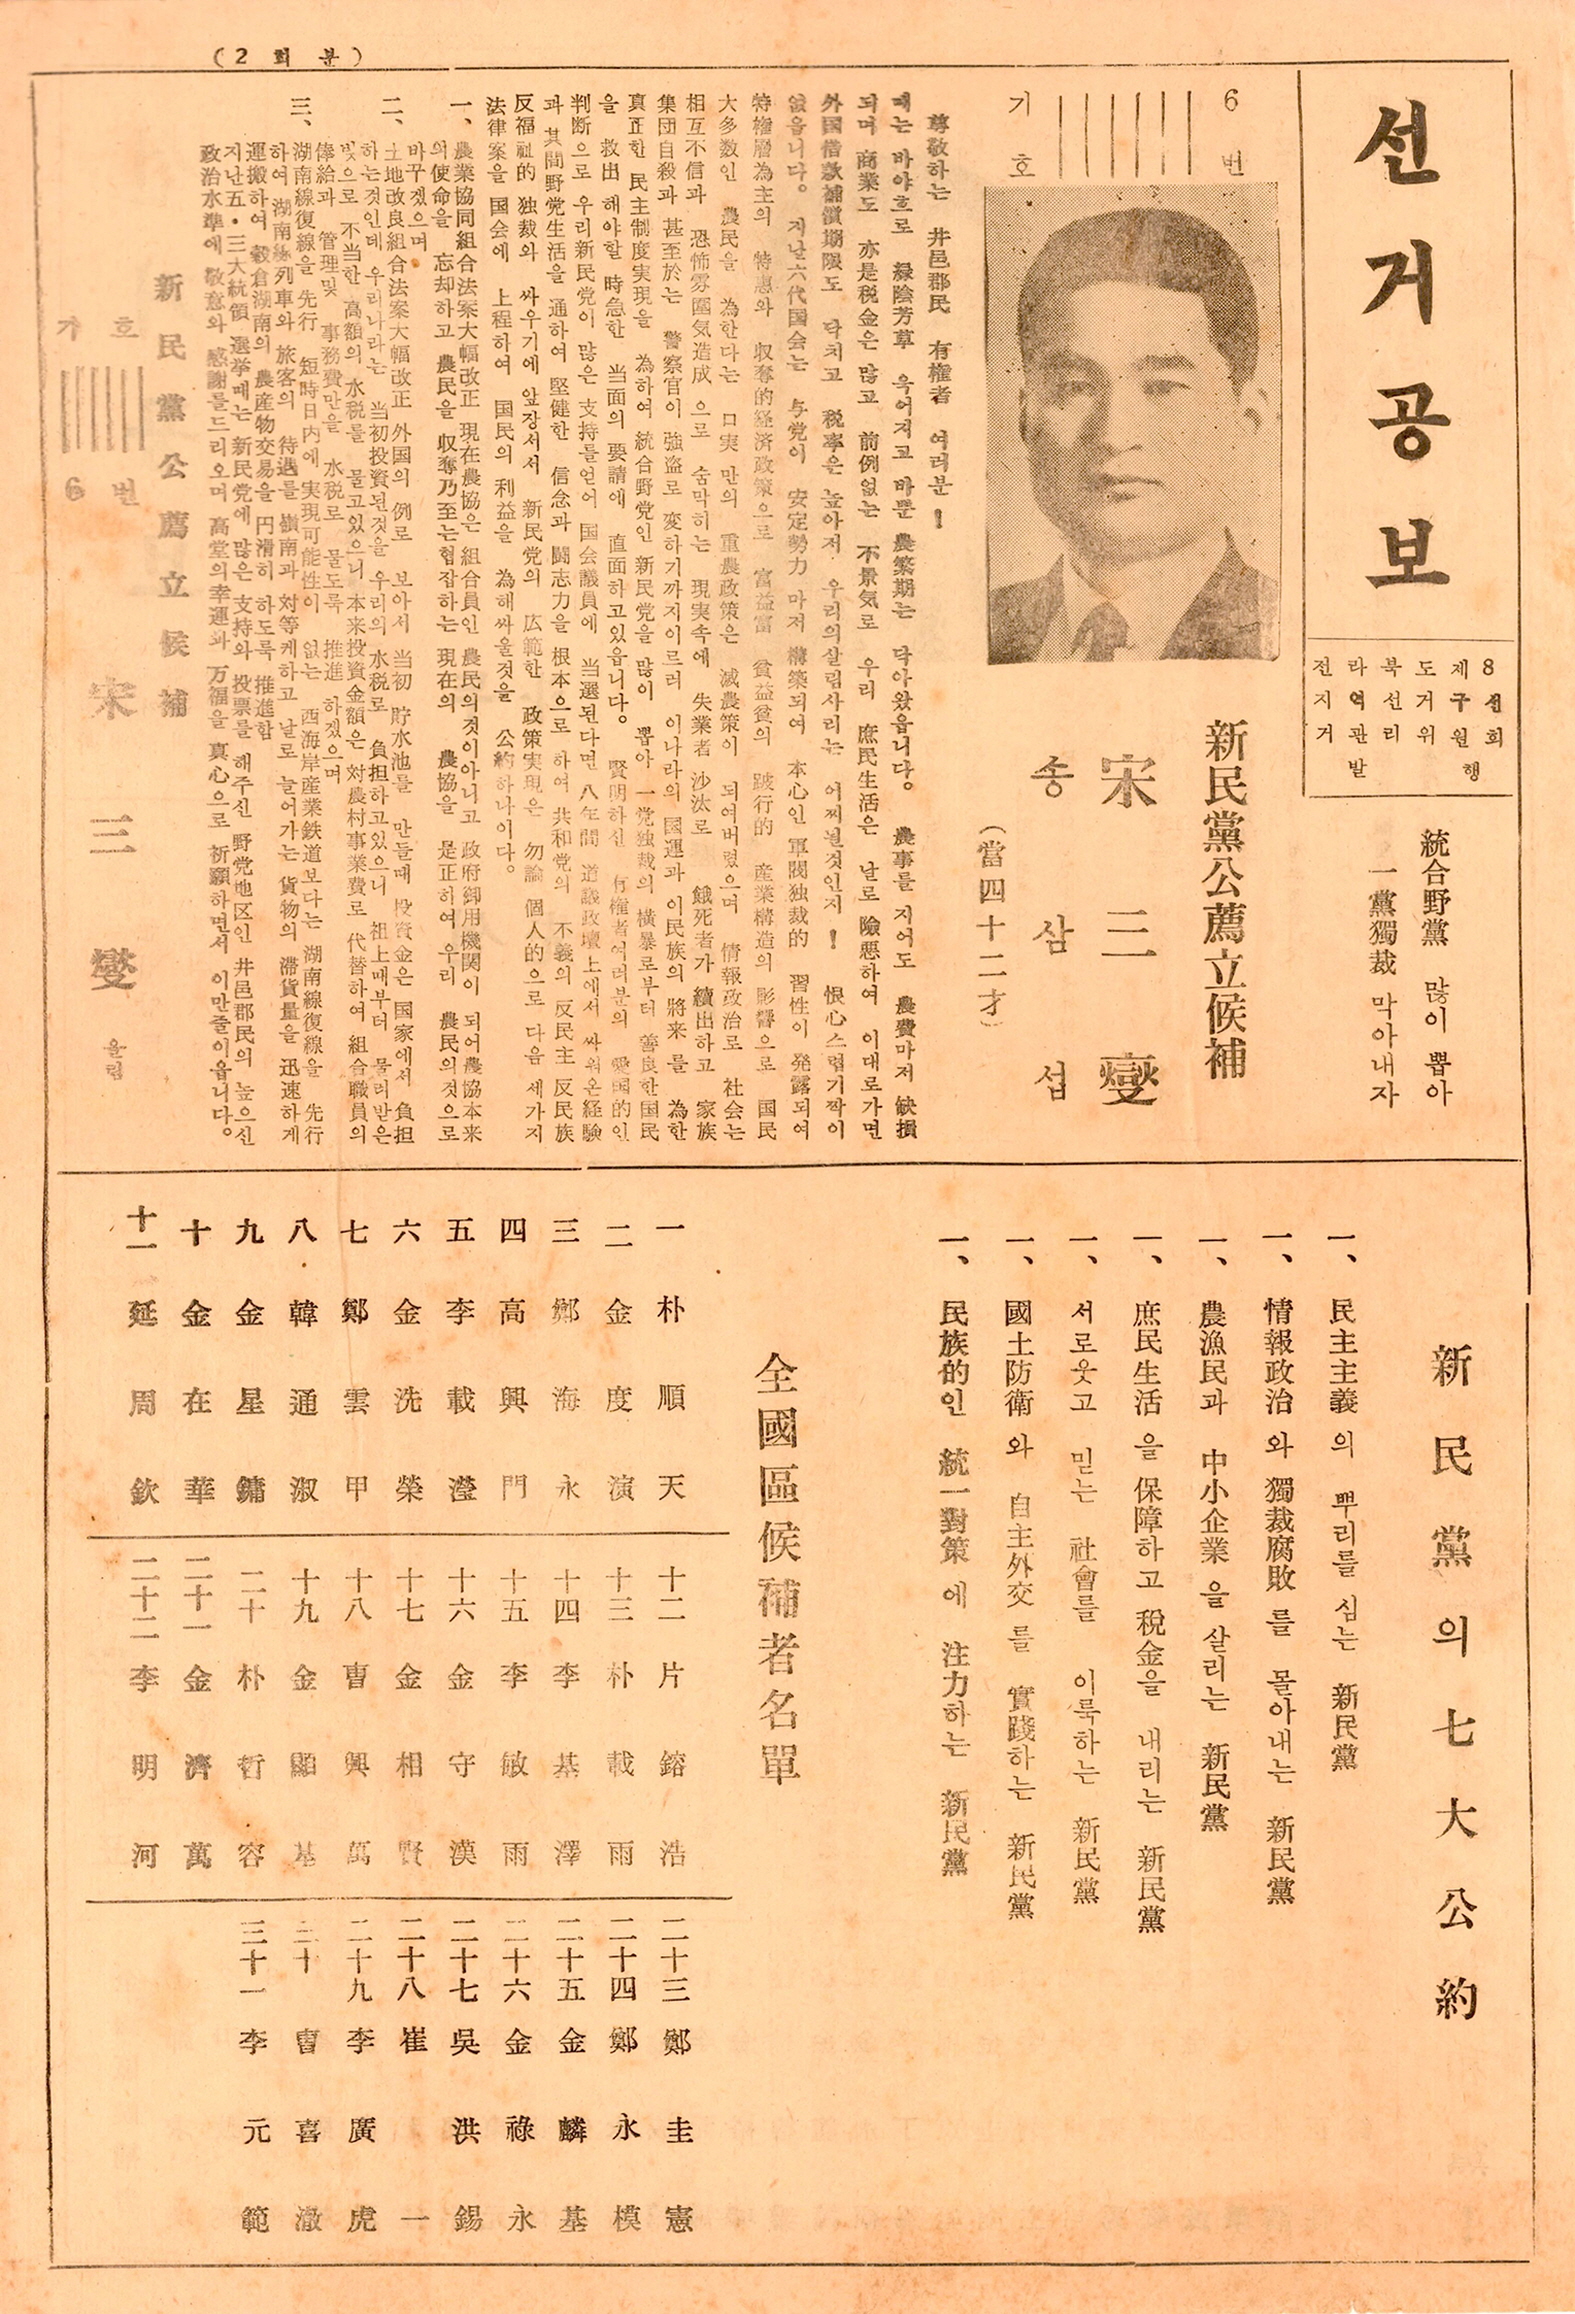 (2 회 분)
선거공보
전라북도제8
지역선거구선
거관리위원회
발행
統合野黨 많이 뽑아
一黨獨裁 막아내자
新民黨公薦立候補
宋三燮
송삼섭
(當四十二才)
6번
기호
尊敬하는 井邑郡民 有権者 여러분!
때는 바야흐로 緑陰芳草 욱어지고 바쁜 農繁期는 닥아왔읍니다。 農事를 지어도 農費마저 缺損
되며 商業도 亦是税金은 많고 前例없는 不景気로 우리 庶民生活은 날로 險悪하여 이대로가면
外国借款補償期限도 닥치고 税率은 높아저 우리의살림사리는 어찌될것인지! 恨心스럽기짝이
없읍니다。 지난六代国会는 与党이 安定勢力 마저 構築되여 本心인 軍閥独裁的 習性이 発露되여
特権層為主의 特惠와 収奪的経済政策으로 富益富 貧益貧의 跛行的 産業構造의 影響으로 国民
大多数인 農民을 為한다는 口実 만의 重農政策은 減農策이 되여버렸으며 情報政治로 社会는
相互不信과 恐怖雰圍気造成 으로 숨막히는 現実속에 失業者 沙汰로 餓死者가 續出하고 家族
集団自殺과 甚至於는 警察官이 強盗로 変하기까지이르러 이나라의 國運과 이民族의 將来 를 為한
真正한 民主制度実現을 為하여 統合野党인 新民党을 많이 뽑아 一党独裁의 横暴로부터 善良한国民
을 救出 해야할 時急한 当面의 要請에 直面하고있읍니다。 賢明하신 有権者여러분의 愛国的인
判断으로 우리新民党이 많은 支持를얻어 国会議員에 当選된다면 八年間 道議政壇上에서 싸워온経験
과 其間野党生活을 通하여 堅健한 信念과 闘志力을 根本으로 하여 共和党의 不義의 反民主 反民族
反福祉的 独裁와 싸우기에 앞장서서 新民党의 広範한 政策実現은 勿論 個人的으로 다음 세가지
法律案을 国会에 上程하여 国民의 利益을 為해싸울것을 公約하나이다。
一、農業協同組合法案大幅改正 現在農協은 組合員인 農民의것이아니고 政府御用機関이 되어農協本来
의使命을 忘却하고 農民을 収奪乃至는협잡하는 現在의 農協을 是正하여 우리 農民의것으로
바꾸겠으며
二、土地改良組合法案大幅改正 外国의 例로 보아서 当初 貯水池를 만들때 投資金은 国家에서 負担
하는것인데 우리나라는 当初投資된것을 우리의 水税로 負担하고있으니 祖上때부터 물려받은
빚으로 不当한 高額의 水税를 물고있으니 本来投資金額은 対農村事業費로 代替하여 組合職員의
俸給과 管理및 事務費만을 水税로 물도록 推進 하겠으며
三、湖南線復線을 先行 短時日内에 実現可能性이 없는 西海岸産業鉄道보다는 湖南線復線을 先行
하여 湖南線列車와 旅客의 待遇를 嶺南과 対等게하고 날로 늘어가는 貨物의 滞貨量을 迅速하게
運搬하여 穀倉湖南의 農産物交易을 円滑히 하도록 推進함
지난五・三大統領 選挙때는 新民党에 많은 支持와 投票를 해주신 野党地区인 井邑郡民의 높으신
政治水準에 敬意와 感謝를드리오며 高堂의幸運과 万福을 真心으로 祈願하면서 이만줄이옵니다。
新民黨公薦立候補
기호
6번
宋三燮 올림
新民黨의七大公約
一、民主主義의 뿌리를 심는 新民黨
一、情報政治와 獨裁腐敗를 몰아내는 新民黨
一、農漁民과 中小企業을 살리는 新民黨
一、庶民生活을 保障하고 税金을 내리는 新民黨
一、서로웃고 믿는 社會를 이룩하는 新民黨
一、國土防衛와 自主外交를 實踐하는 新民黨
一、民族的인 統一對策에 注力하는 新民黨
全國區候補者名單
一 朴順天
二 金度演
三 鄭海永
四 高興門
五 李載瀅
六 金洗榮
七 鄭雲甲
八 韓通淑
九 金星鏞
十 金在華
十一 延周欽
十二 片鎔浩
十三 朴載雨
十四 李基澤
十五 李敏雨
十六 金守漢
十七 金相賢
十八 曺興萬
十九 金顯基
二十 朴哲容
二十一 金濟萬
二十二 李明河
二十三 鄭圭憲
二十四 鄭永模
二十五 金麟基
二十六 金祿永
二十七 吳洪錫
二十八 崔一
二十九 李廣虎
三十 曺喜澈
三十一 李元範